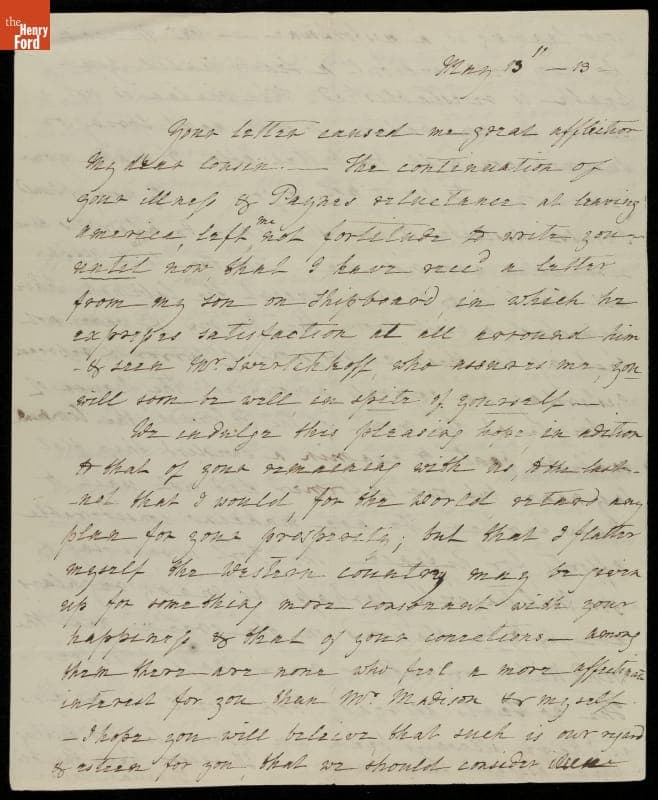 the
Henry
Ford
May 13" – 13 –
Your letter caused me great affliction
My dear Cousin. — The continuation of
your illness & Paynes reluctance at leaving
america, left me not fortitude to write you –
until now that I have recd a letter
from my son on Shipboard, in which he
expresses satisfaction at all arround him
– & seen Mr. Swertchkoff who assures me, you
will soon be well, in spite of yourself —
We indulge this pleasing hope, in adition
to that of your remaining with us, to the last –
– not that I would, for the World retard any
plan for your prosperity; but that I flatter
myself the Western country may be given
up for something more consonant with your
happiness & that of your conections – among
them there are none who feel a more affectionate
interest for you than Mr. Madison & myself.
– I hope you will beleive that such is our regard
& esteem for you, that we should consider